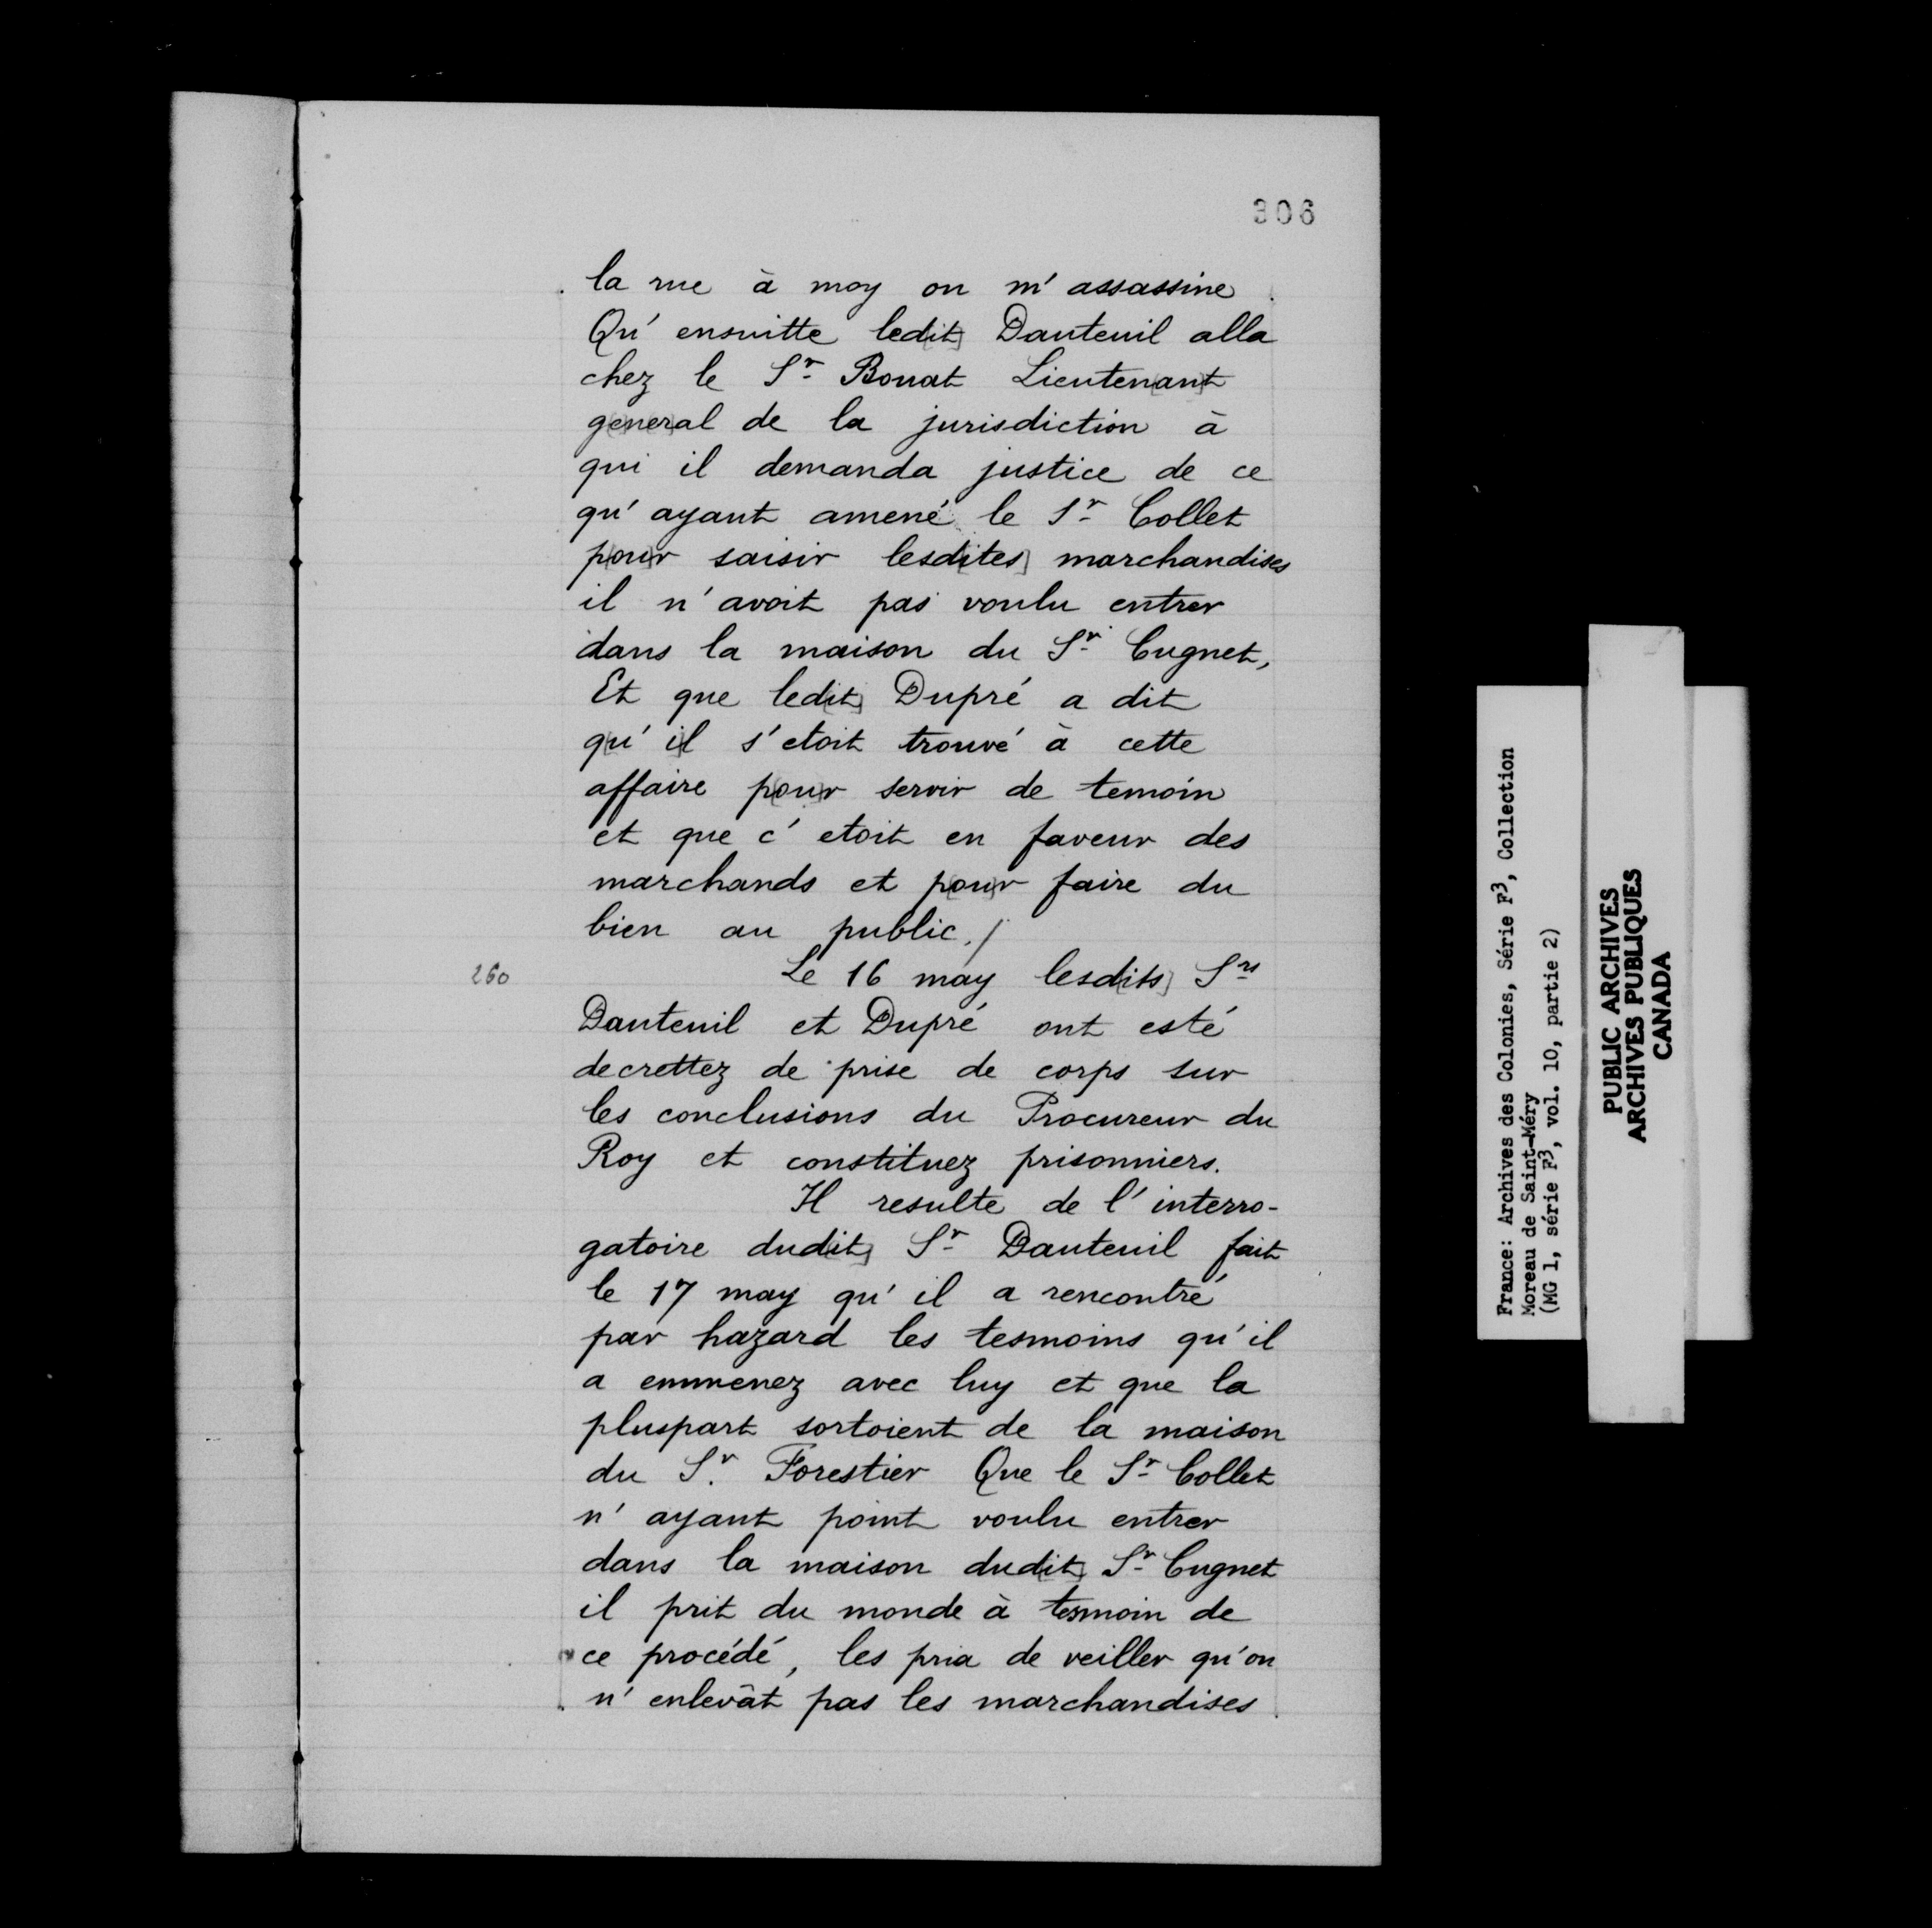 306
la rue à moy on m'assassine
Qu'ensuitte led[it] Dauteuil alla
chez le Sr Bouat Lieuten[an]t
g[e]n[er]al de la jurisdiction à
qui il demanda justice de ce
qu'ayant amené le Sr Collet
p[ou]r saisir lesd[ites] marchandises
il n'avoit pas voulu entrer
dans la maison du Sr Cugnet,
Et que led[it] Dupré a dit
q[u'i]l s'etoit trouvé à cette
affaire p[ou]r servir de temoin
et que c'etoit en faveur des
marchands et p[ou]r faire du
bien au public./
260
Le 16 may lesd[its] Srs
Dauteuil et Dupré ont esté
decrettez de prise de corps sur
les conclusions du Procureur du
Roy et constituez prisonniers.
Il resulte de l'interro-
gatoire dud[it] Sr Dauteuil fait
le 17 may qu'il a rencontré
par hazard les tesmoins qu'il
a emmenez avec luy et que la
pluspart sortoient de la maison
du Sr. Forestier Que le Sr Collet
n'ayant point voulu entrer
dans la maison dud[it] Sr Cugnet
il prit du monde à tesmoin de
ce procédé, les pria de veiller qu'on
n'enlevât pas les marchandises
France: Archives des Colonies, Série F3, Collection
Moreau de Saint-Méry
(MG 1, série F3, vol. 10, partie 2)
PUBLIC ARCHIVES
ARCHIVES PUBLIQUES
CANADA